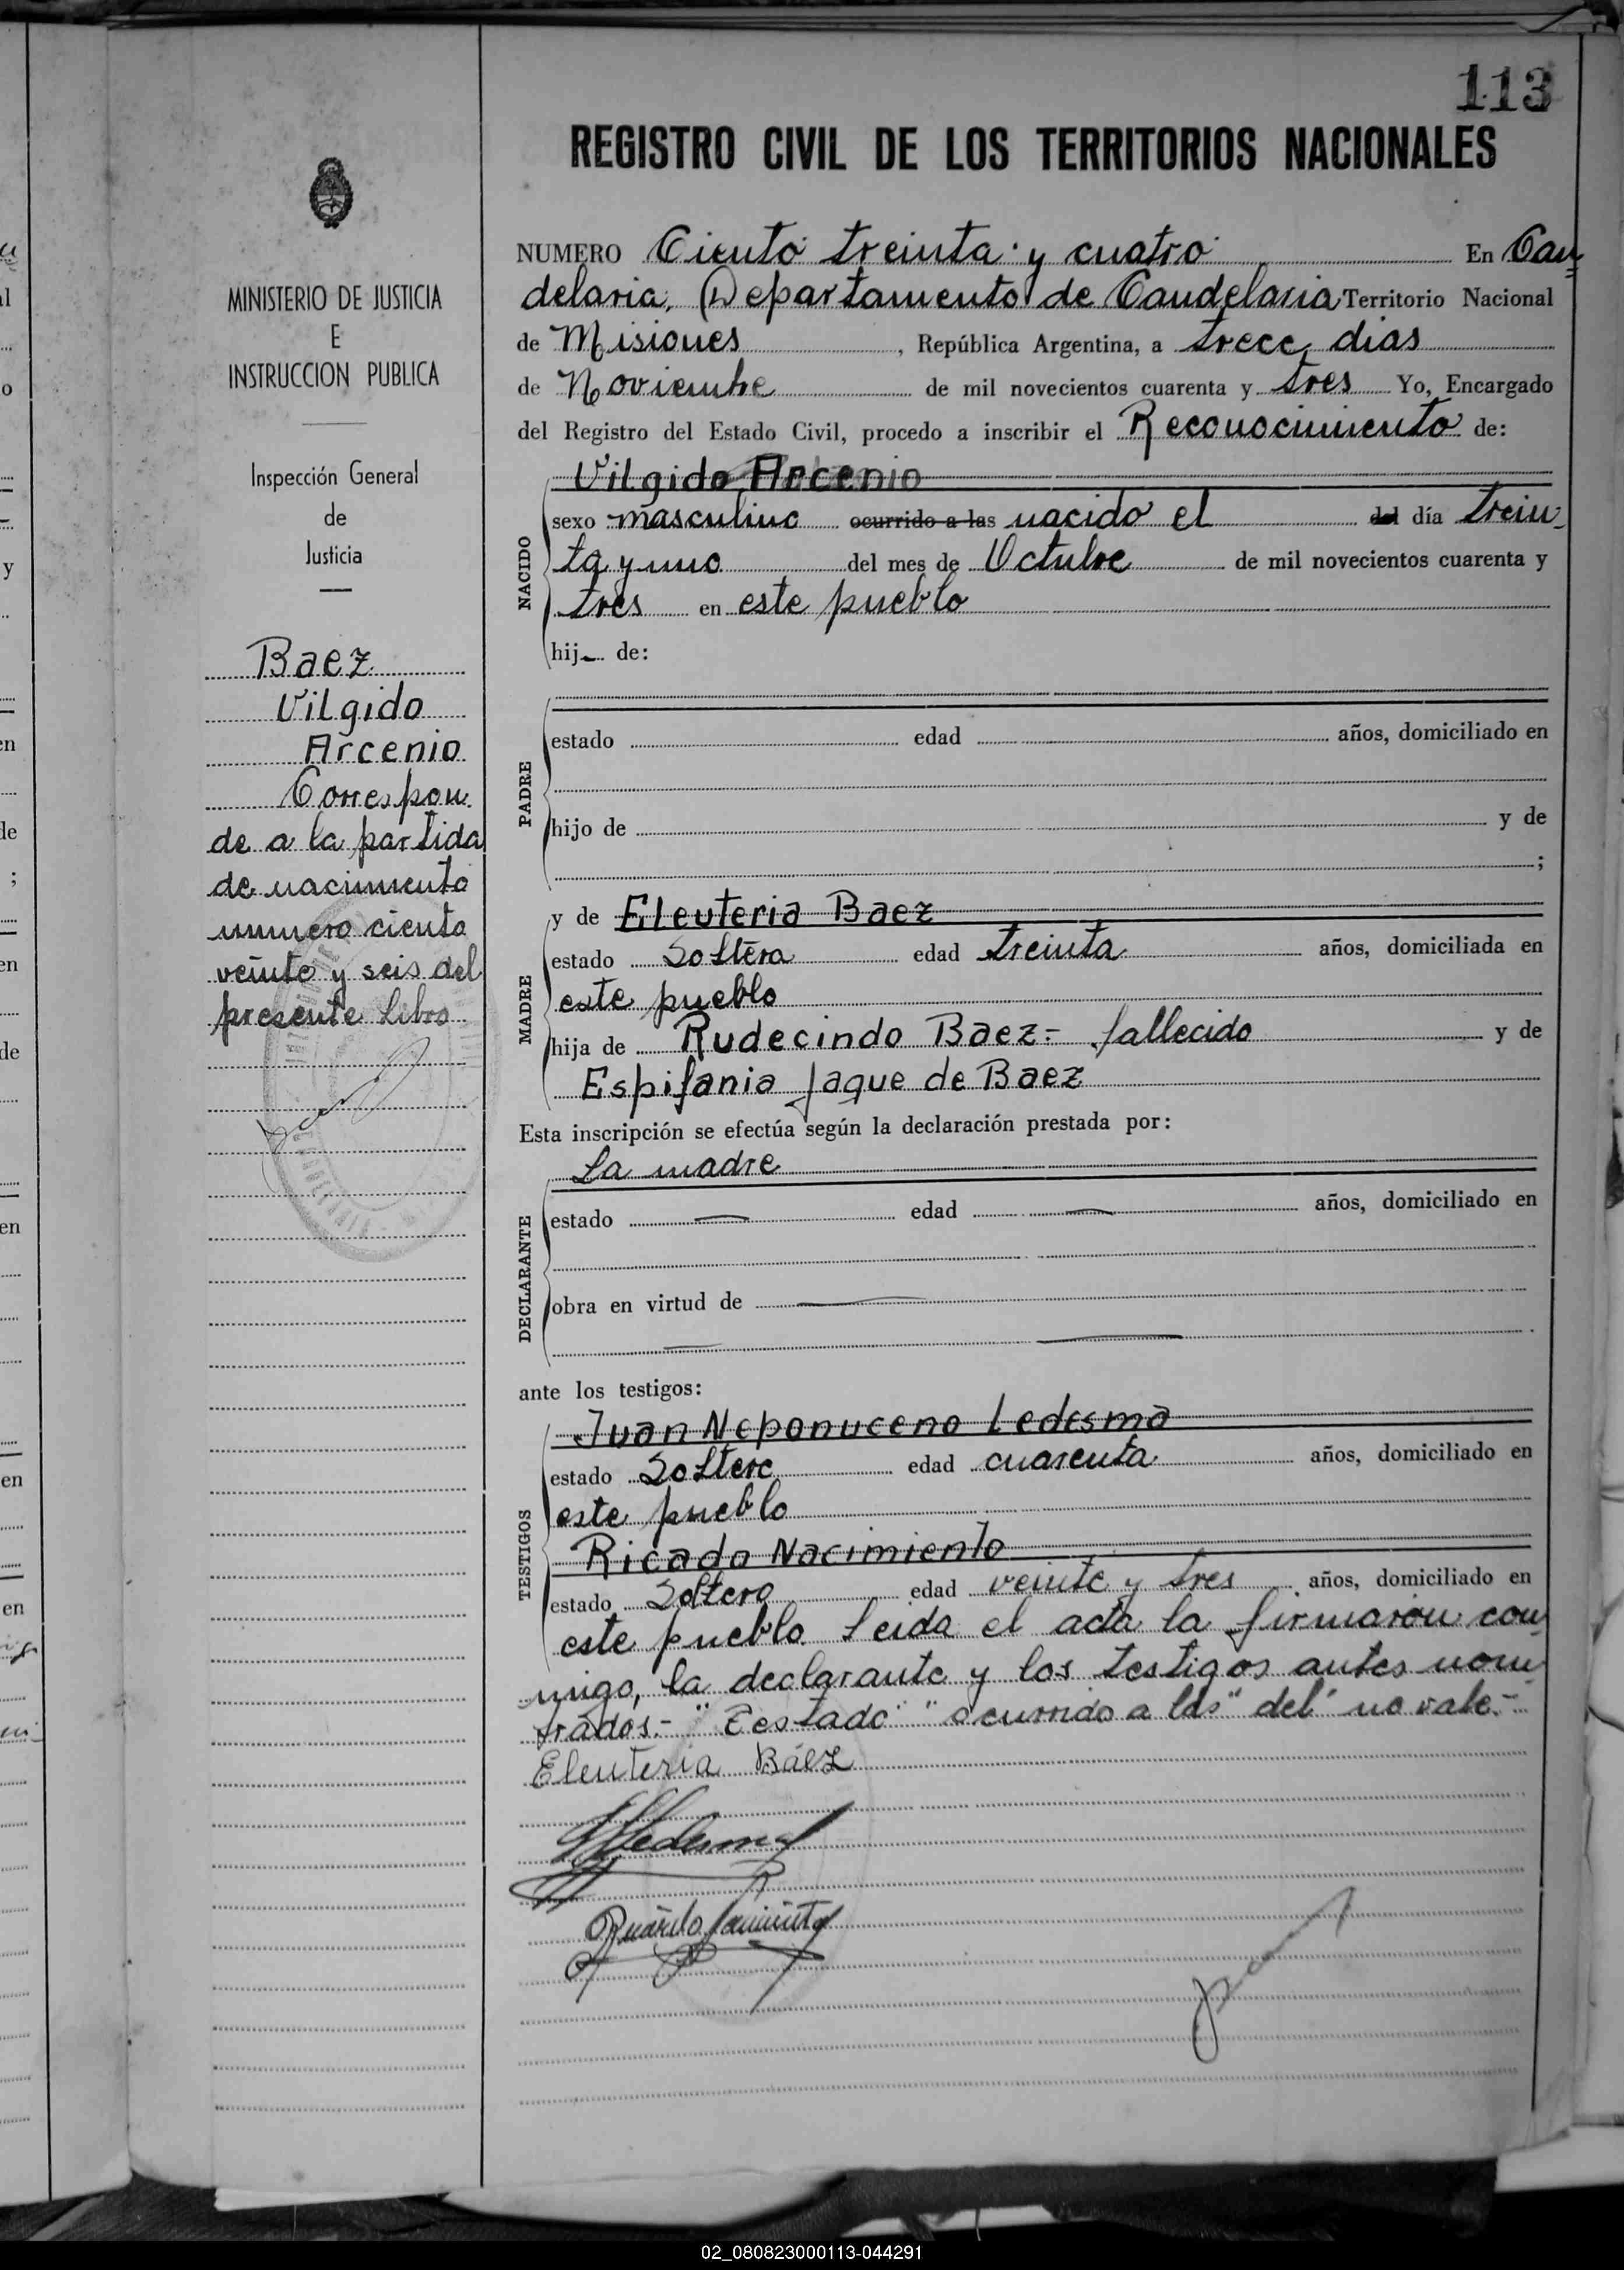 113
REGISTRO CIVIL DE LOS TERRITORIOS NACIONALES
MINISTERIO DE JUSTICIA
E
INSTRUCCION PUBLICA
Inspección General
de
Justicia
Baez
Vilgido
Arcenio
Correspon
de a la partida
de nacimiento
numero ciento
veinte y seis del
presente libro
NUMERO Ciento treinta y cuatro En Can
delaria, Departamento de Candelaria Territorio Nacional
de Misiones, República Argentina, a trece dias
de Noviembre de mil novecientos cuarenta y tres Yo, Encargado
del Registro del Estado Civil, procedo a inscribir el Reconocimiento de:
Vilgido Arcenio
NACIDO
sexo masculino ocurrido a las nacido el del día trein
ta y uno del mes de Octubre de mil novecientos cuarenta y
tres en este pueblo
hij de:
PADRE
estado edad años, domiciliado en
hijo de y de
;
MADRE
y de Eleuteria Baez
estado Soltera edad treinta años, domiciliada en
este pueblo
hija de Rudecindo Baez=fallecido y de
Espifania Jaque de Baez
Esta inscripción se efectúa según la declaración prestada por:
La madre
DECLARANTE
estado edad años, domiciliado en
obra en virtud de
ante los testigos:
TESTIGOS
Juan Neponuceno Ledesma
estado Soltero edad cuarenta años, domiciliado en
este pueblo
Ricado Nacimiento
estado Soltero edad veinte y tres años, domiciliado en
este pueblo Leida el acta la firmaron con
migo, la declarante y los testigos antes nom
brados.- "ocurrido a las" "del" no vale.-
Eleuteria Báez
Ledesma
Ricardo Nacimiento
02_080823000113-044291